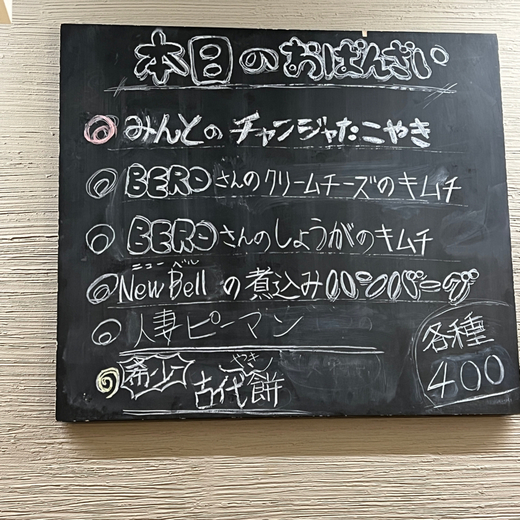 本日のおばんざい
みんとのチャンジャたこやき
BEROさんのクリームチーズのキムチ
BEROさんのしょうがのキムチ
ニューベル
New Bellの煮込みハンバーグ
人妻ピーマン
希少
古代餅
各種
400